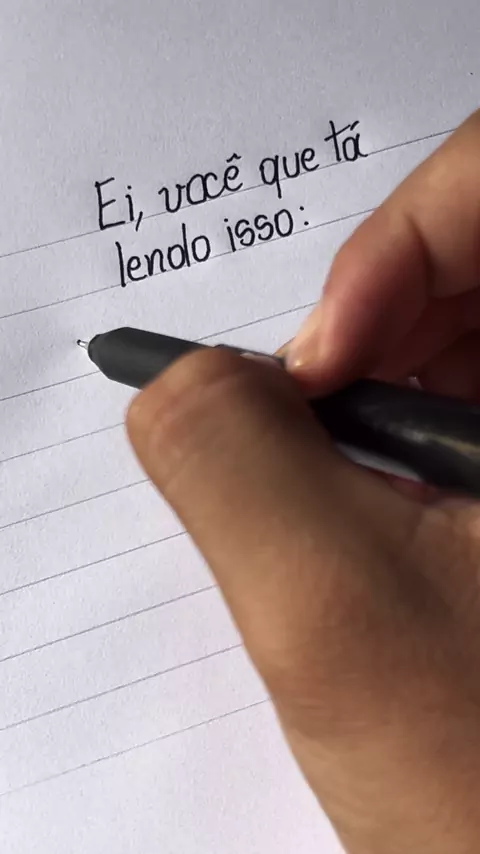 Ei, você que tá
lendo isso: